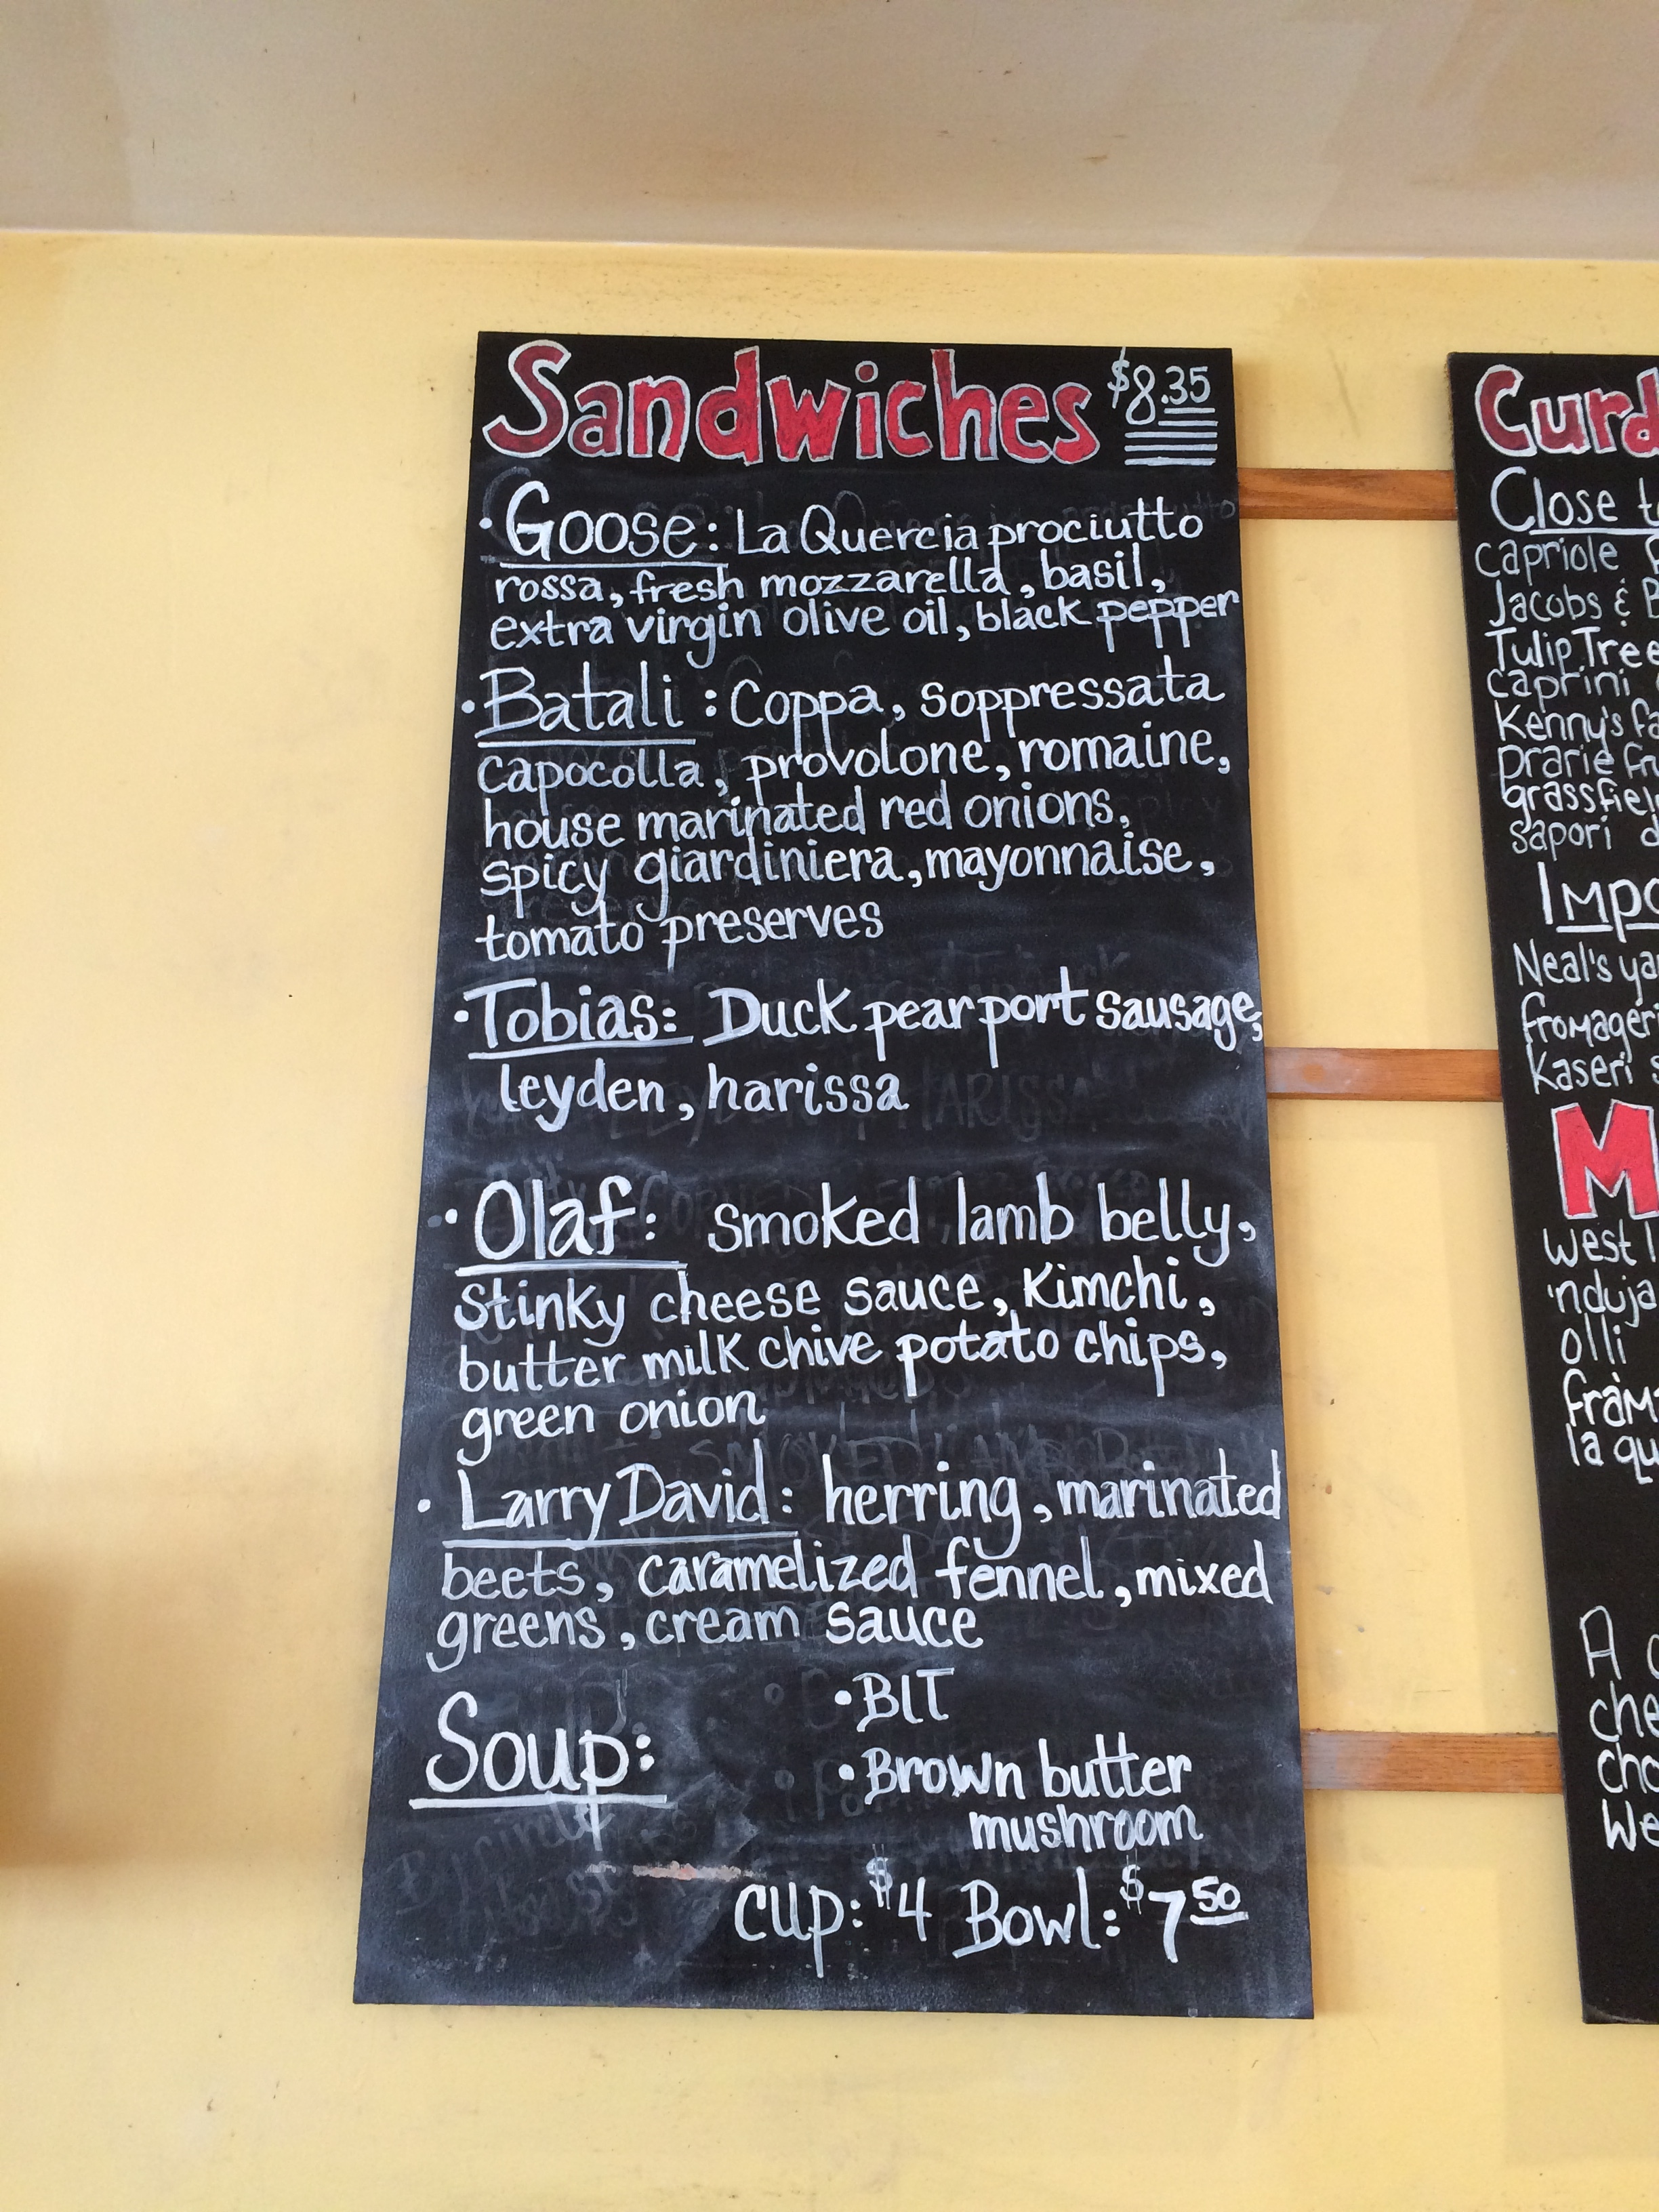 Sandwiches $8.35
• Goose: La Quercia prociutto
rossa, fresh mozzarella, basil,
extra virgin olive oil, black pepper
• Batali: Coppa, soppressata
capocolla, provolone, romaine,
house marinated red onions,
spicy giardiniera, mayonnaise,
tomato preserves
• Tobias: Duck pear port sausage,
leyden, harissa
• Olaf: smoked lamb belly,
stinky cheese sauce, Kimchi,
butter milk chive potato chips,
green onion
• Larry David: herring, marinated
beets, caramelized fennel, mixed
greens, cream sauce
Soup:
• BLT
• Brown butter
mushroom
cup: $4 Bowl: $7 50
Curd
Close
capriole
Jacobs &
Tulip Tree
caprini
Kenny's
prarie
sapori
Neal's
Kaseri
M
west
'nduja
olli
la
A